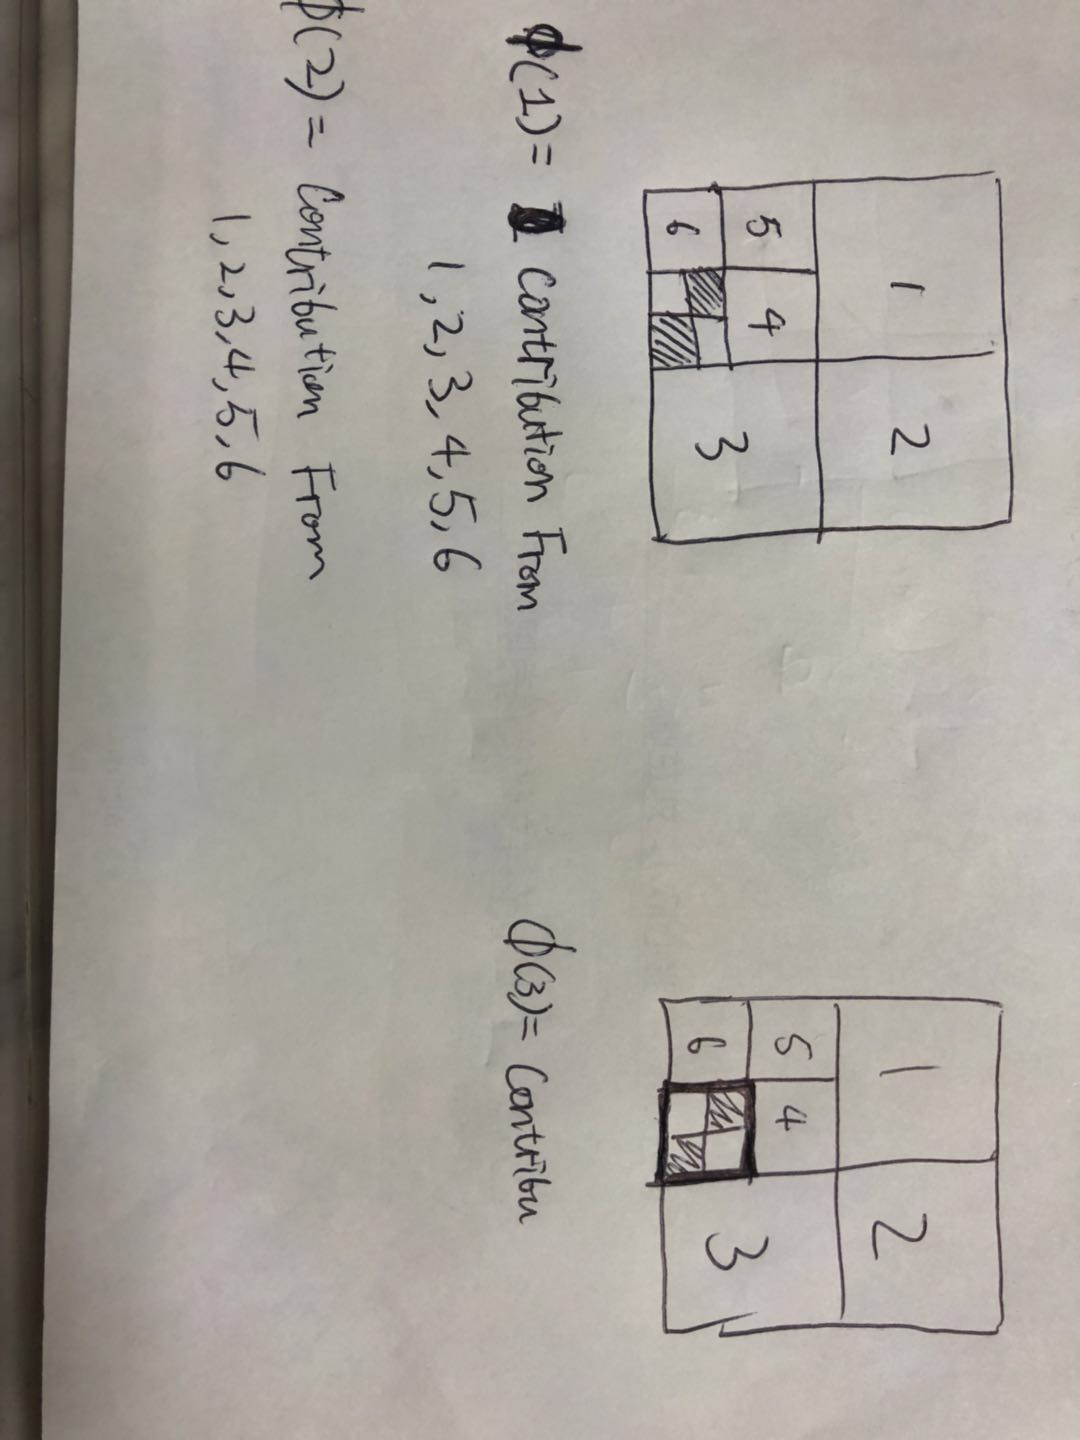 1 2
5 4
6 3
ϕ(1)= Contribution From
1,2,3,4,5,6
ϕ(2)= Contribution From
1,2,3,4,5,6
1 2
5 4
6 3
ϕ(3)= Contribu